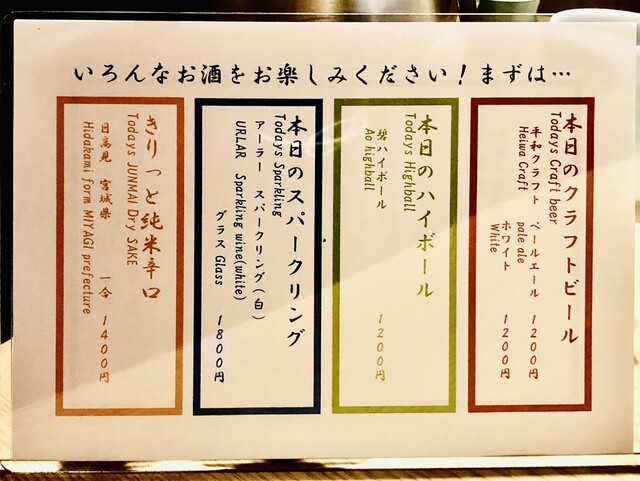 いろんなお酒をお楽しみください！まずは…
本日のクラフトビール
Todays Craft beer
平和クラフト ペールエール 1200円
Heiwa Craft pale ale
ホワイト 1200円
White
本日のハイボール
Todays Highball
碧ハイボール 1200円
Ao highball
本日のスパークリング
Todays Sparkling
アーラー スパークリング（白）
URLAR Sparkling wine(white)
グラス Glass 1800円
きりっと純米辛口
Todays JUNMAI Dry SAKE
日高見 宮城県 一合 1400円
Hidakami form MIYAGI prefecture